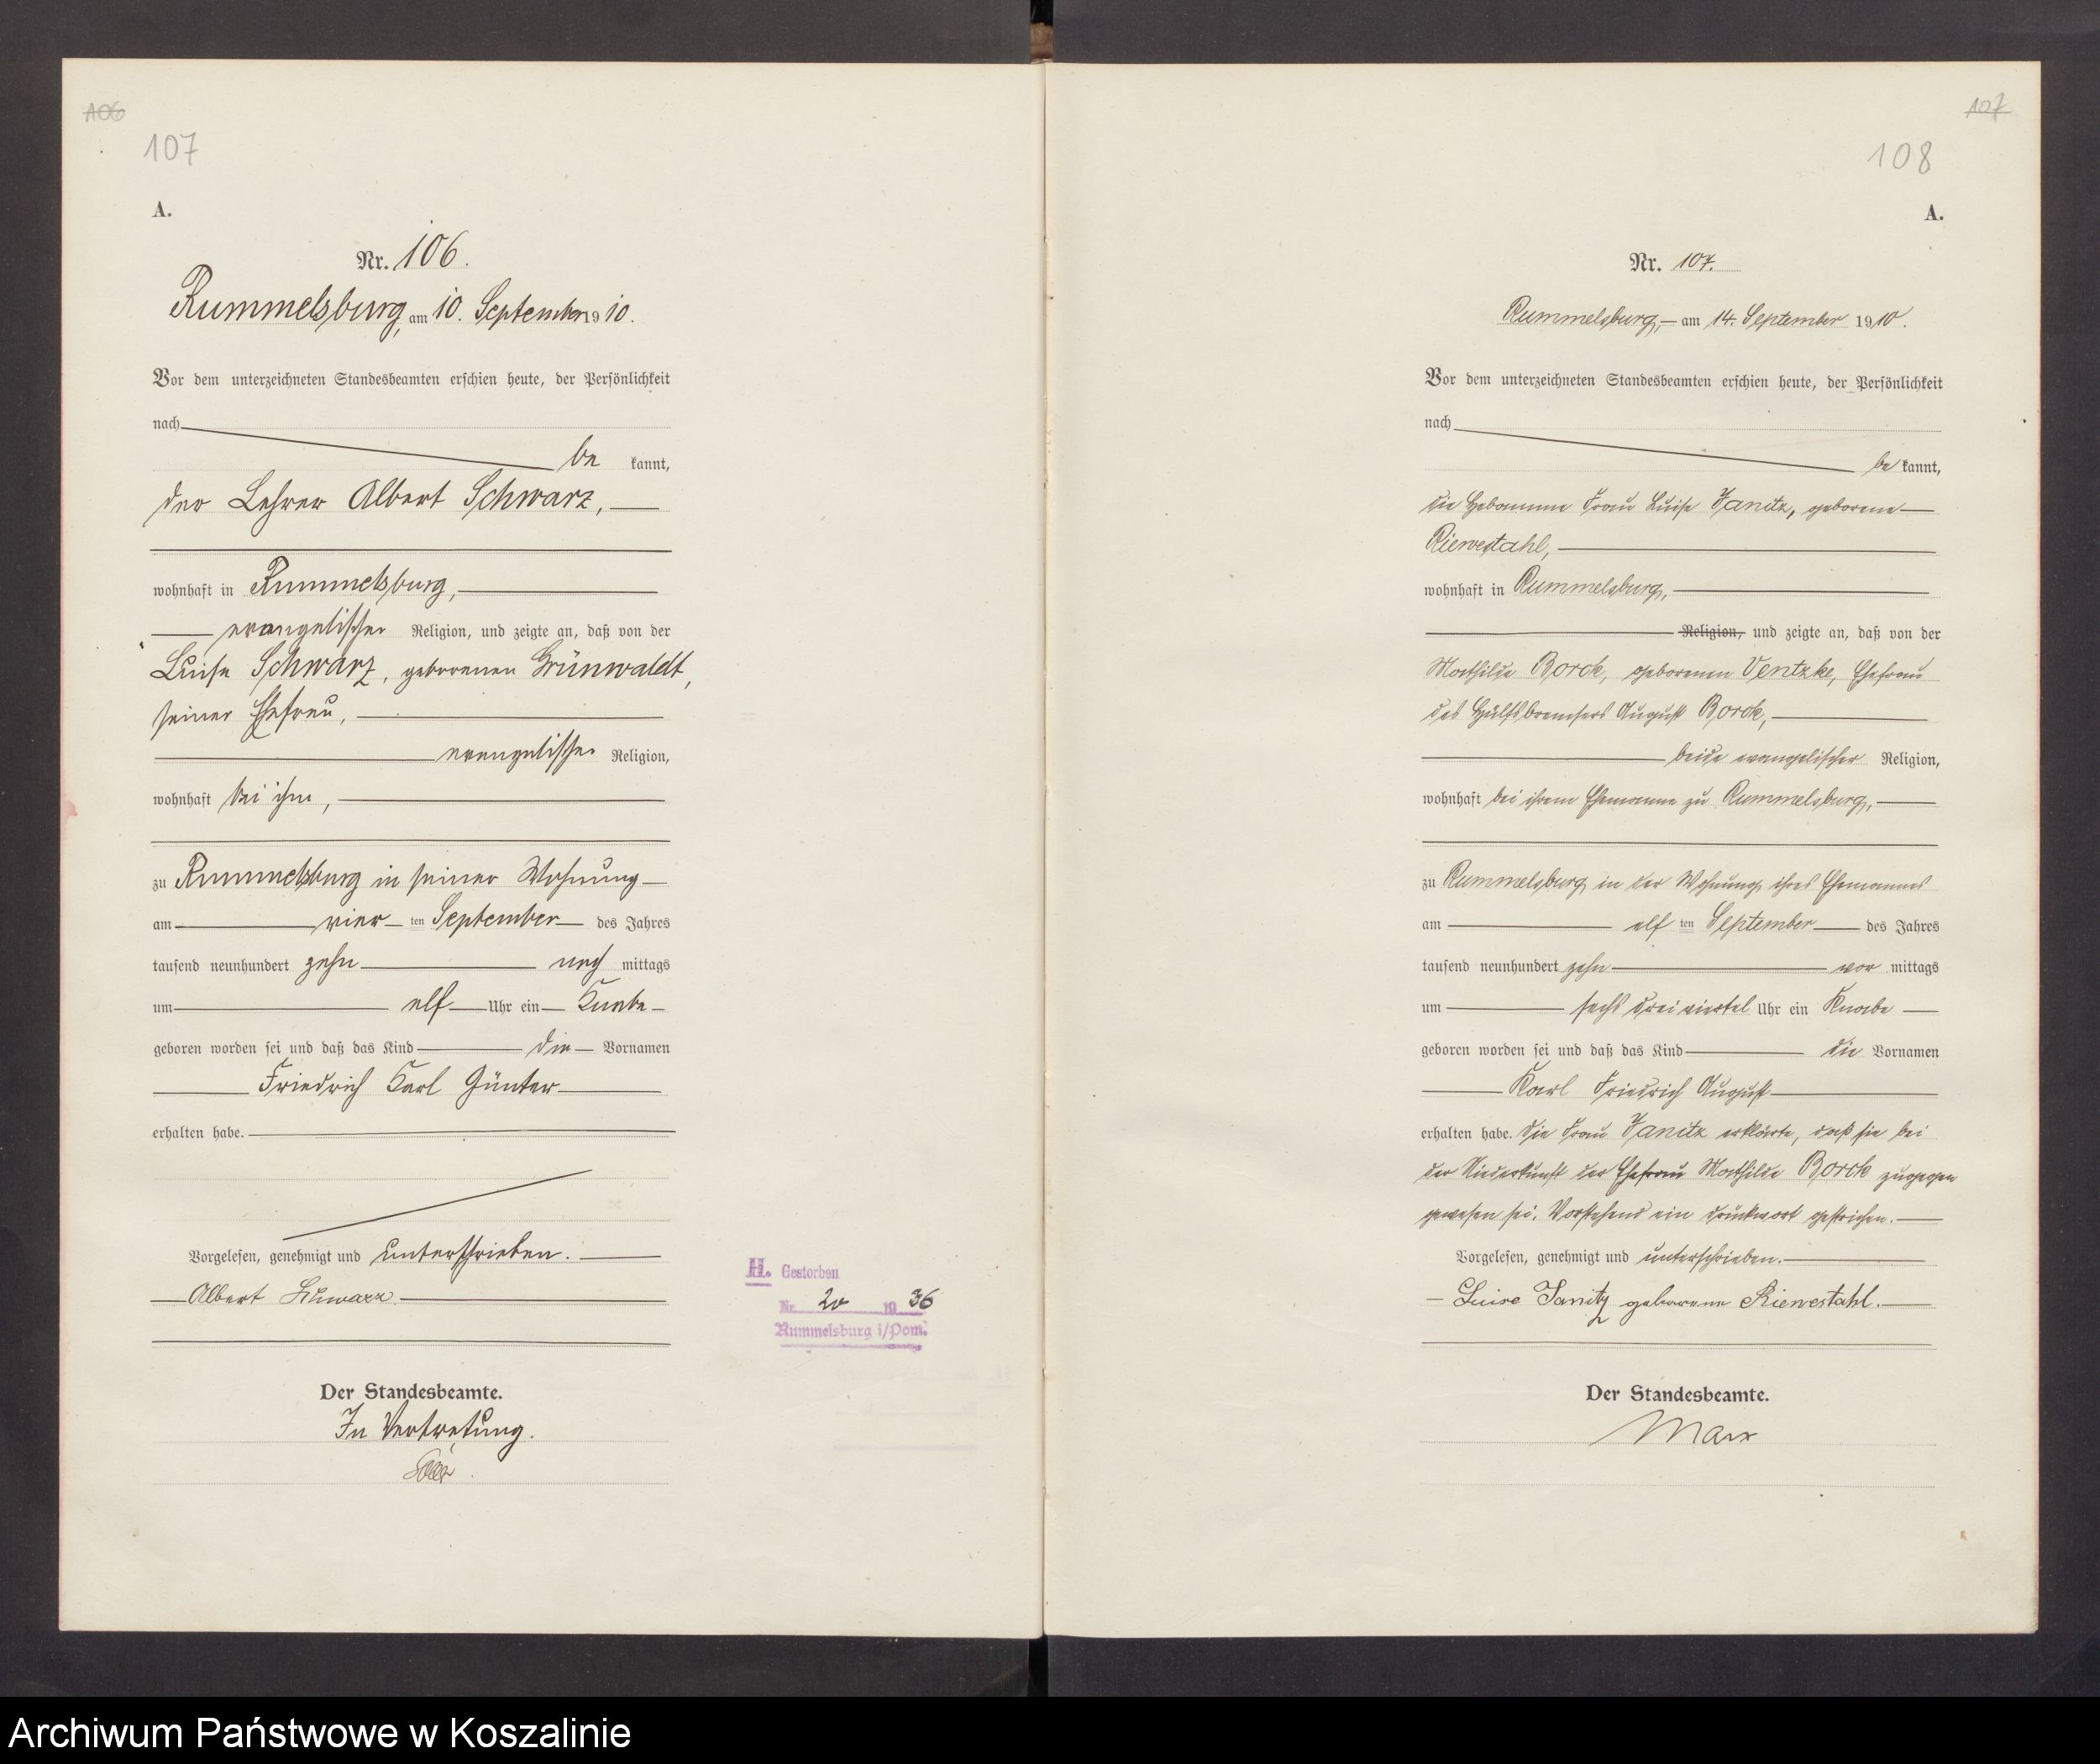 106
107
A.
Nr. 106.
Rummelsburg, am 10. September 1910.
Vor dem unterzeichneten Standesbeamten erschien heute, der Persönlichkeit
nach
be kannt,
der Lehrer Albert Schwarz,
wohnhaft in Rummelsburg,
evangelischer Religion, und zeigte an, daß von der
Luise Schwarz, geborenen Grünwaldt,
seiner Ehefrau,
evangelischer Religion,
wohnhaft bei ihm,
zu Rummelsburg in seiner Wohnung
am vier ten September des Jahres
tausend neunhundert zehn nach mittags
um elf Uhr ein Knabe
geboren worden sei und daß das Kind die Vornamen
Friedrich Karl Günter
erhalten habe.
Vorgelesen, genehmigt und unterschrieben.
Albert Schwarz.
Der Standesbeamte.
In Vertretung.
H. Gestorben
Nr. 20 19 36
Rummelsburg i/Pom.
107
108
A.
Nr. 107.
Rummelsburg, am 14. September 1910.
Vor dem unterzeichneten Standesbeamten erschien heute, der Persönlichkeit
nach
be kannt,
die Hebamme Frau Luise Janitz, geborene
Riewestahl,
wohnhaft in Rummelsburg,
Religion, und zeigte an, daß von der
Mathilde Borck, geborenen Ventzke, Ehefrau
des Hülfsbremsers August Borck,
beide evangelischer Religion,
wohnhaft bei ihrem Ehemanne zu Rummelsburg,
zu Rummelsburg in der Wohnung ihres Ehemannes
am elf ten September des Jahres
tausend neunhundert zehn vor mittags
um sechs dreiviertel Uhr ein Knabe
geboren worden sei und daß das Kind die Vornamen
Karl Friedrich August
erhalten habe. Die Frau Janitz erklärte, daß sie bei
der Niederkunft der Ehefrau Mathilde Borck zugegen
gewesen sei. Vorstehend ein Druckwort gestrichen.
Vorgelesen, genehmigt und unterschrieben.
Luise Janitz geborene Riewestahl.
Der Standesbeamte.
Marx
Archiwum Państwowe w Koszalinie